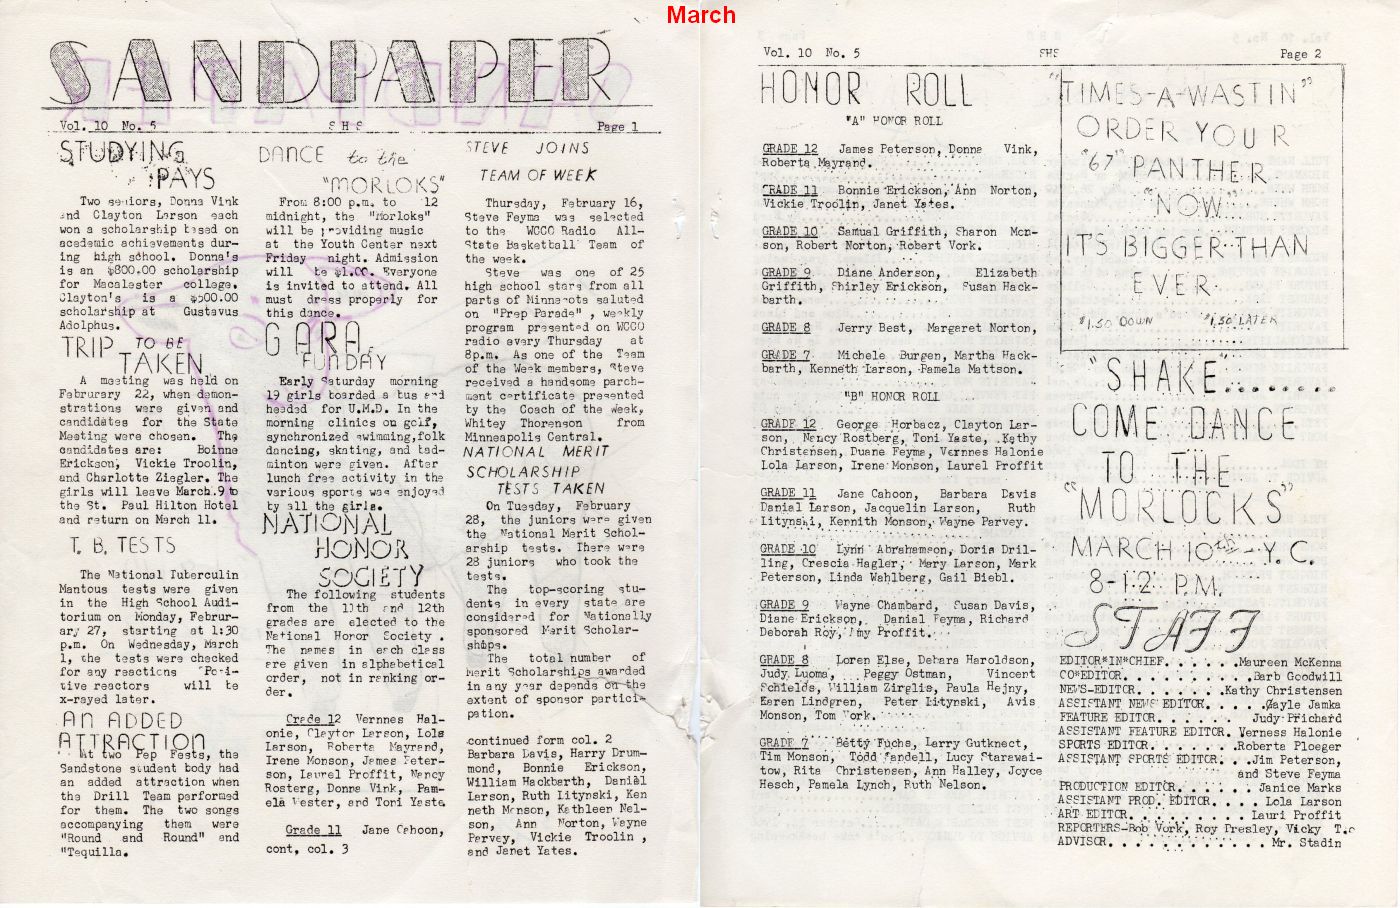 March
SANDPAPER
Vol. 10 No. 5 SHS Page 1
STUDYING
PAYS
Two seniors, Donna Vink
and Clayton Larson each
won a scholarship based on
academic achievements dur-
ing high school. Donna's
is an $800.00 scholarship
for Macalester college.
Clayton's is a $500.00
scholarship at Gustavus
Adolphus.
TRIP TO BE
TAKEN
A meeting was held on
Februrary 22, when demon-
strations were given and
candidates for the State
Meeting were chosen. The
candidates are: Boinne
Erickson, Vickie Troolin,
and Charlotte Ziegler. The
girls will leave March 9 to
the St. Paul Hilton Hotel
and return on March 11.
T. B. TESTS
The National Tuberculin
Mantous tests were given
in the High School Audi-
torium on Monday, Februr-
ary 27, starting at 1:30
p.m. On Wednesday, March
1, the tests were checked
for any reactions Posi-
tive reactors will be
x-rayed later.
AN ADDED
ATTRACTION
At two Pep Fests, the
Sandstone student body had
an added attraction when
the Drill Team performed
for them. The two songs
accompanying them were
"Round and Round" and
"Tequilla.
DANCE to the
"MORLOKS"
From 8:00 p.m. to 12
midnight, the "Morloks"
will be providing music
at the Youth Center next
Friday night. Admission
will be $1.00. Everyone
is invited to attend. All
must dress properly for
this dance.
G.A.R.A.
FUNDAY
Early Saturday morning
19 girls boarded a bus and
headed for U.M.D. In the
morning clinics on golf,
synchronized swimming, folk
dancing, skating, and bad-
minton were given. After
lunch free activity in the
various sports was enjoyed
by all the girls.
NATIONAL
HONOR
SOCIETY
The following students
from the 11th and 12th
grades are elected to the
National Honor Society.
The names in each class
are given in alphabetical
order, not in ranking or-
der.
Grade 12 Vernnes Hal-
onie, Clayton Larson, Lola
Larson, Roberta Mayrand,
Irene Monson, James Peter-
son, Laurel Proffit, Nancy
Rosterg, Donna Vink, Pam-
ela Wester, and Toni Yaste.
Grade 11 Jane Cahoon,
cont, col. 3
STEVE JOINS
TEAM OF WEEK
Thursday, February 16,
Steve Feyma was selected
to the WCCO Radio All-
State Basketball Team of
the week.
Steve was one of 25
high school stars from all
parts of Minnesota saluted
on "Prep Parade", weekly
program presented on WCCO
radio every Thursday at
8p.m. As one of the Team
of the Week members, Steve
received a handsome parch-
ment certificate presented
by the Coach of the Week,
Whitey Thorenson from
Minneapolis Central.
NATIONAL MERIT
SCHOLARSHIP
TESTS TAKEN
On Tuesday, February
28, the juniors were given
the National Merit Schol-
arship tests. There were
28 juniors who took the
tests.
The top-scoring stu-
dents in every state are
considered for Nationally
sponsored Merit Scholar-
ships.
The total number of
Merit Scholarships awarded
in any year depends on the
extent of sponsor partici-
pation.
continued form col. 2
Barbara Davis, Harry Drum-
mond, Bonnie Erickson,
William Hackbarth, Daniel
Larson, Ruth Litynski, Ken
neth Monson, Kathleen Nel-
son, Ann Norton, Wayne
Parvey, Vickie Troolin,
and Janet Yates.
Vol. 10 No. 5 SHS Page 2
HONOR ROLL
"A" HONOR ROLL
GRADE 12 James Peterson, Donna Vink,
Roberta Mayrand.
GRADE 11 Bonnie Erickson, Ann Norton,
Vickie Troolin, Janet Yates.
GRADE 10 Samual Griffith, Sharon Mon-
son, Robert Norton, Robert Vork.
GRADE 9 Diane Anderson, Elizabeth
Griffith, Shirley Erickson, Susan Hack-
barth.
GRADE 8 Jerry Best, Margaret Norton,
GRADE 7 Michele Burgen, Martha Hack-
barth, Kenneth Larson, Pamela Mattson.
"B" HONOR ROLL
GRADE 12 George Horbacz, Clayton Lar-
son, Nancy Rostberg, Toni Yaste, Kathy
Christensen, Duane Feyma, Vernnes Halonie
Lola Larson, Irene Monson, Laurel Proffit
GRADE 11 Jane Cahoon, Barbara Davis
Danial Larson, Jacquelin Larson, Ruth
Litynski, Kennith Monson, Wayne Parvey.
GRADE 10 Lynn Abrahamson, Doris Dril-
ling, Crescia Hagler, Mary Larson, Mark
Peterson, Linda Wahlberg, Gail Biebl.
GRADE 9 Wayne Chambard, Susan Davis,
Diane Erickson, Danial Feyma, Richard
Deborah Roy, Amy Proffit.
GRADE 8 Loren Else, Debara Haroldson,
Judy Luoma, Peggy Ostman, Vincent
Schields, William Zirglis, Paula Hejny,
Karen Lindgren, Peter Litynski, Avis
Monson, Tom Vork.
GRADE 7 Betty Fuchs, Larry Gutknect,
Tim Monson, Todd Sandell, Lucy Starawai-
tow, Rita Christensen, Ann Halley, Joyce
Hesch, Pamela Lynch, Ruth Nelson.
"TIMES-A-WASTIN"
ORDER YOUR
"67" PANTHER
"NOW"
IT'S BIGGER THAN
EVER
$1.50 DOWN $1.50 LATER
"SHAKE........
COME DANCE
TO THE
"MORLOCKS"
MARCH 10th - Y.C.
8-12 P.M.
STAFF
EDITOR*IN*CHIEF......Maureen McKenna
CO*EDITOR..........Barb Goodwill
NEWS-EDITOR.......Kathy Christensen
ASSISTANT NEWS EDITOR.....Gayle Jamka
FEATURE EDITOR........Judy Prichard
ASSISTANT FEATURE EDITOR. Verness Halonie
SPORTS EDITOR.......Roberta Ploeger
ASSISTANT SPORTS EDITOR...Jim Peterson,
and Steve Feyma
PRODUCTION EDITOR.......Janice Marks
ASSISTANT PROD. EDITOR....Lola Larson
ART EDITOR.........Lauri Proffit
REPORTERS-Bob Vork, Roy Presley, Vicky T.
ADVISOR............Mr. Stadin